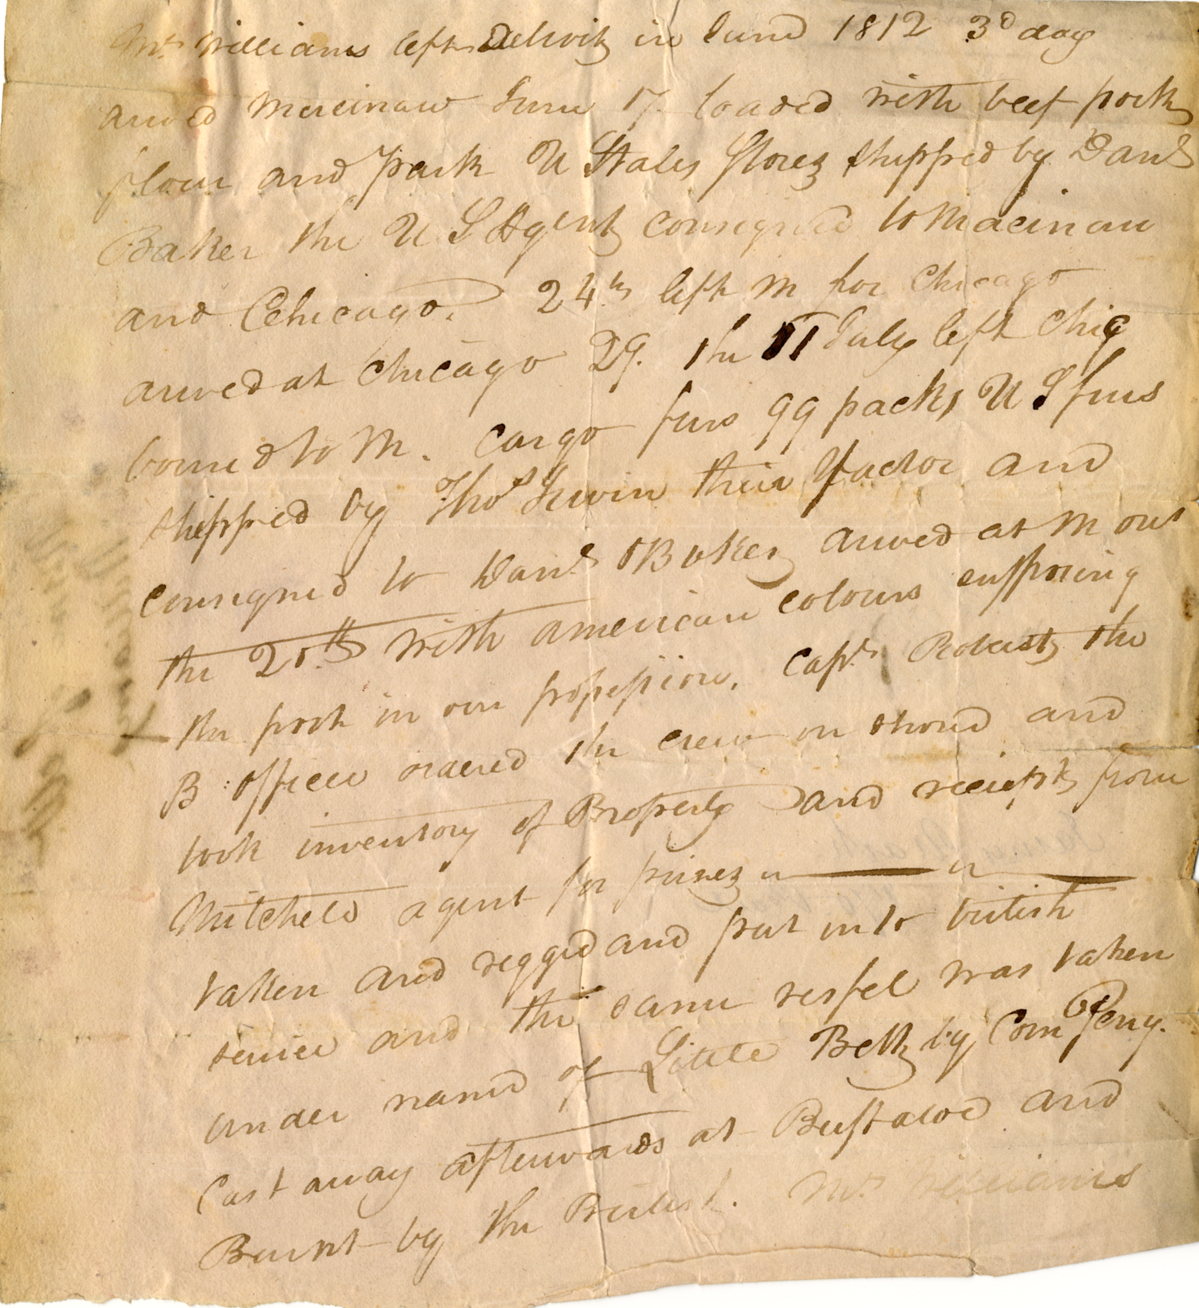 Mrs Williams left Detroit in Jund 1812 3d day
arived Macinaw June 17. loaded with beef pork
flour and pork U States Stores shipped by Danl
Baker the U S Agent consigned to Macinaw
and Chicago. 24th left M for Chicago
arived at Chicago 29. the 11 July left Chig
bound to M. Cargo furs 99 packs U S furs
shipped by Thos Irwin their factor and
consigned to Danl Baker arived at M out
the 20th with american colours supposing
the post in our possession. Capt Roberts the
B officer ordered the crew on shore and
took inventory of Property and reciepts from
Mitcheld agent for prizes
taken and rigged and put into british
service and the same vessel was taken
under name of Little Belt by Com Perry.
Cast away afterwards at Buffaloe and
Burnt by the British. Mrs Williams